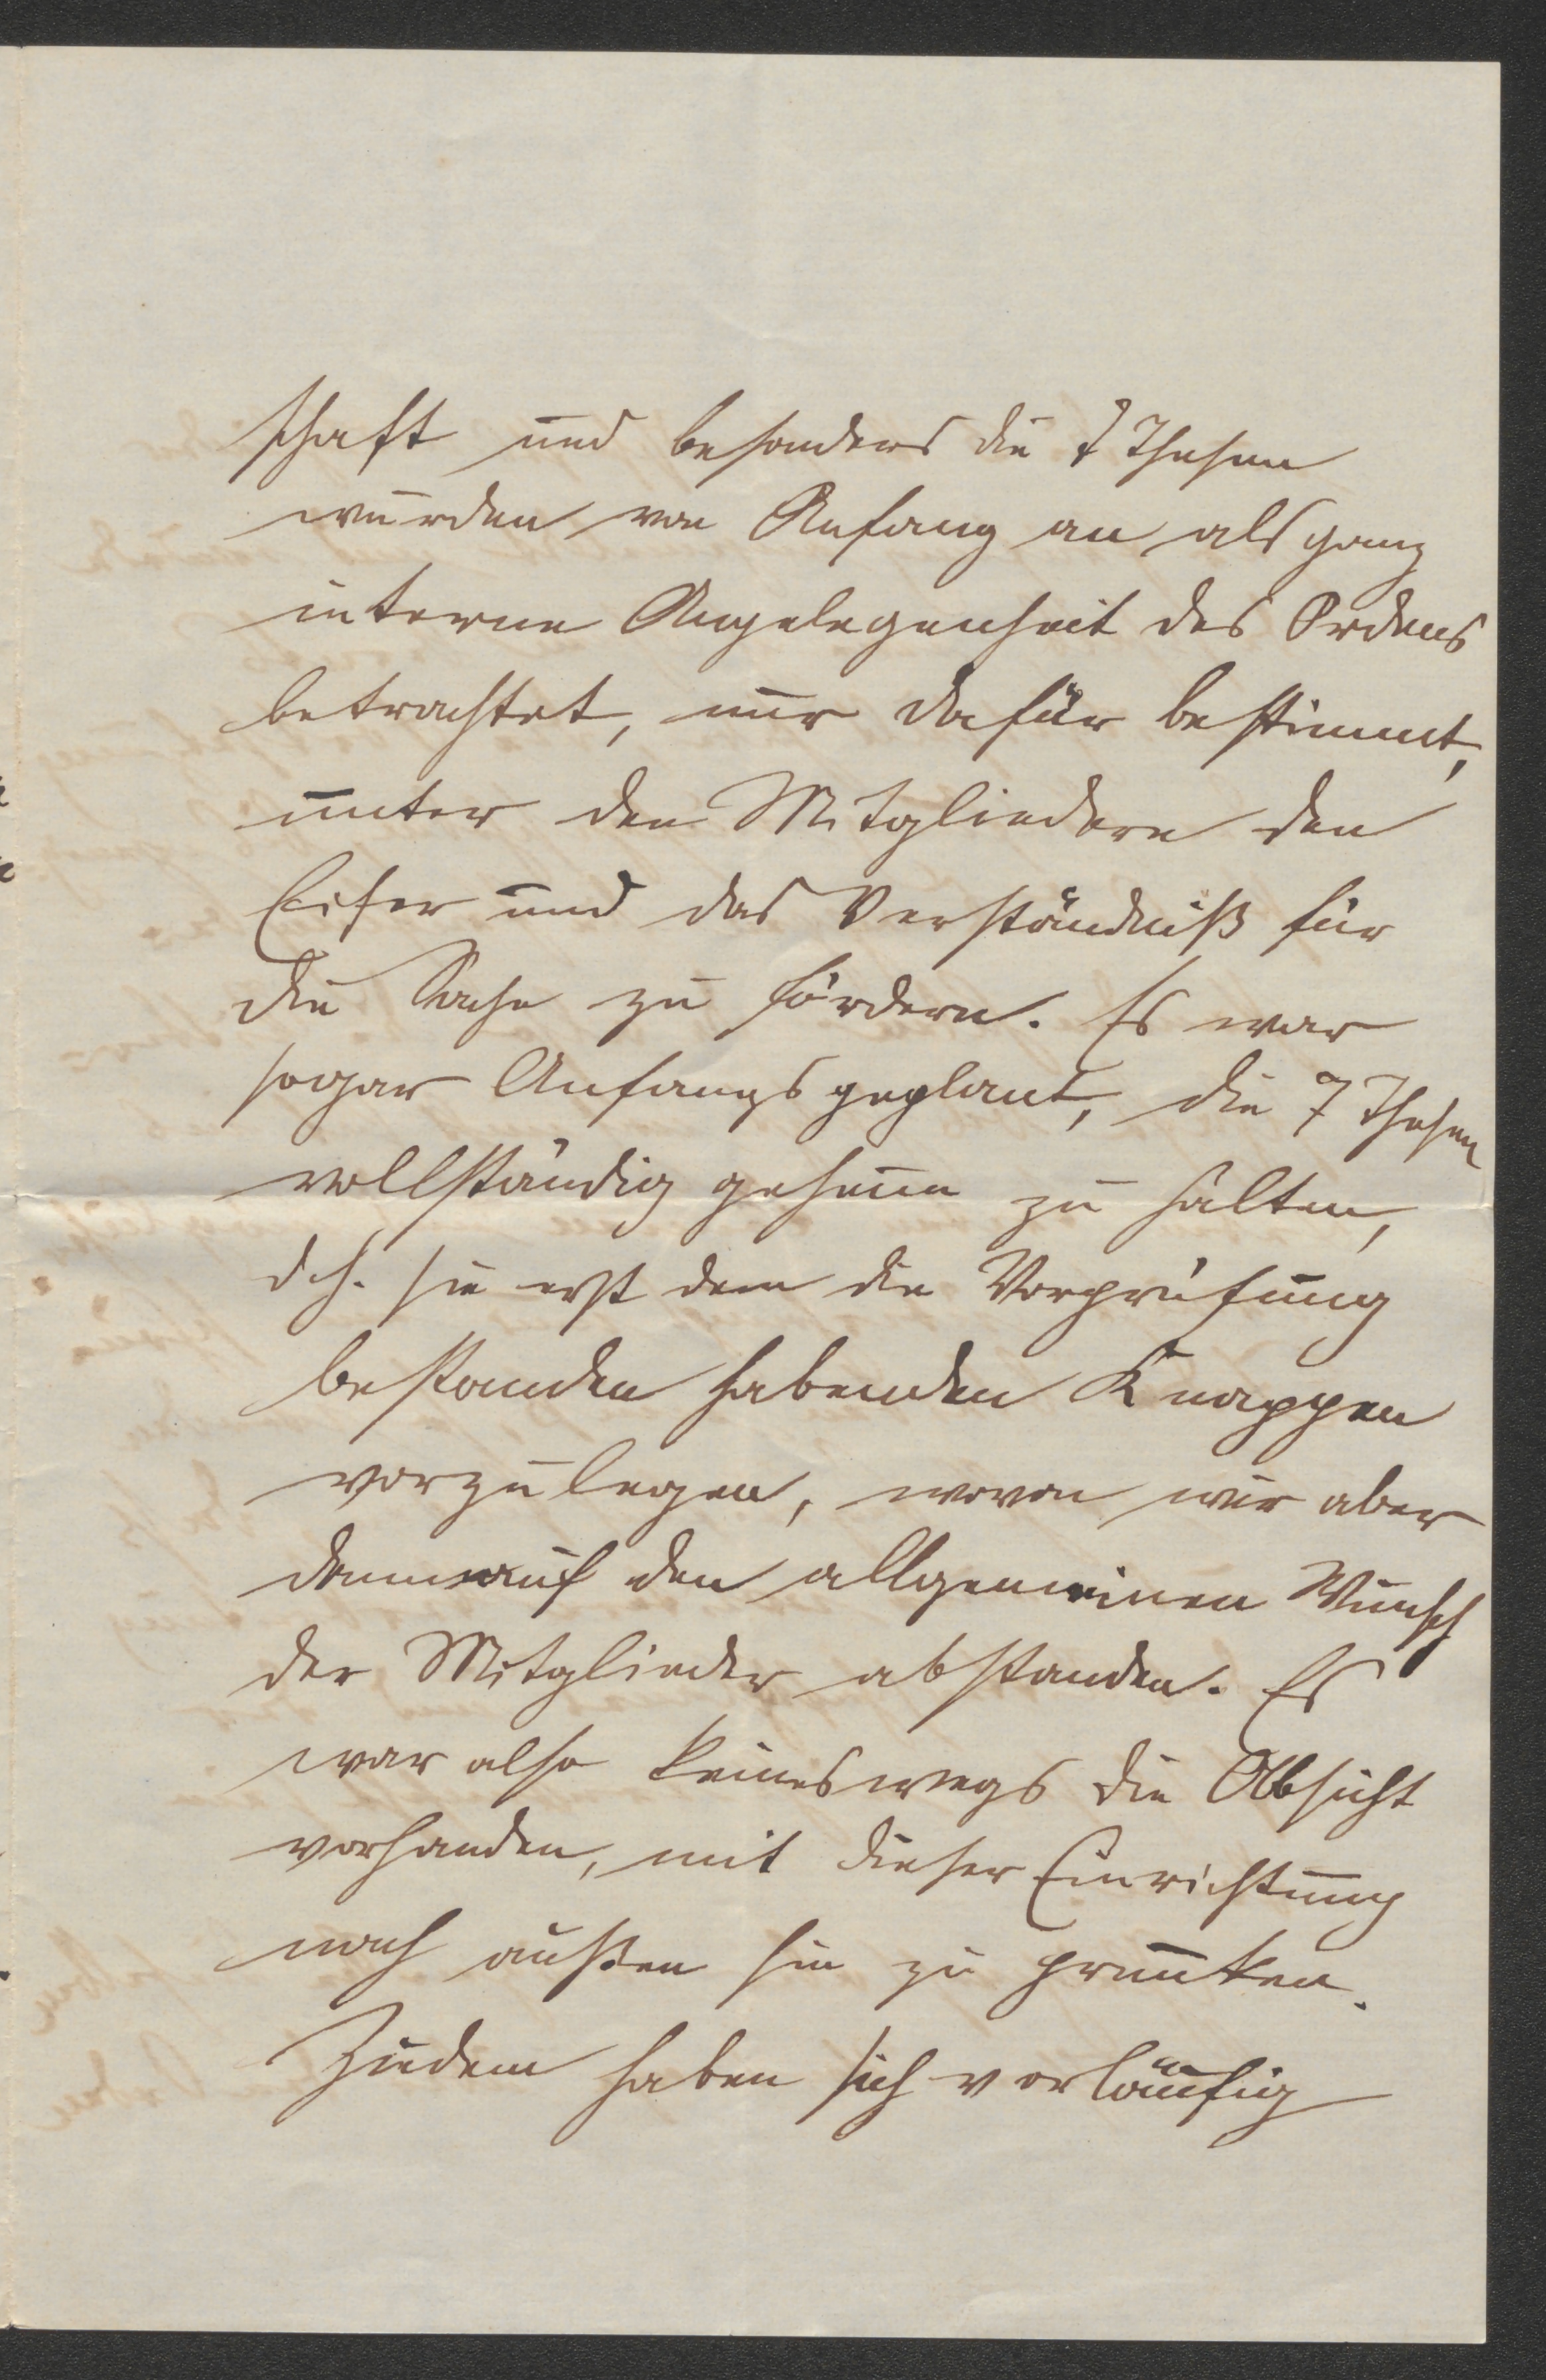 schaft und besonders die 7 Thesen
wurden von Anfang an als ganz
interne Angelegenheit des Ordens
betrachtet, nur dafür bestimmt,
unter den Mitgliedern den
Eifer und das Verständniß für
die Sache zu fördern. Es war
sogar Anfangs geplant, die 7 Thesen
vollständig geheim zu halten,
d. h. sie erst dem die Vorprüfung
bestanden habenden Knappen
vorzulegen, wovon wir aber
dann auf den allgemeinen Wunsch
der Mitglieder abstanden. Es
war also keineswegs die Absicht
vorhanden, mit dieser Einrichtung
nach außen hin zu prunken.
Zudem haben sich vorläufig